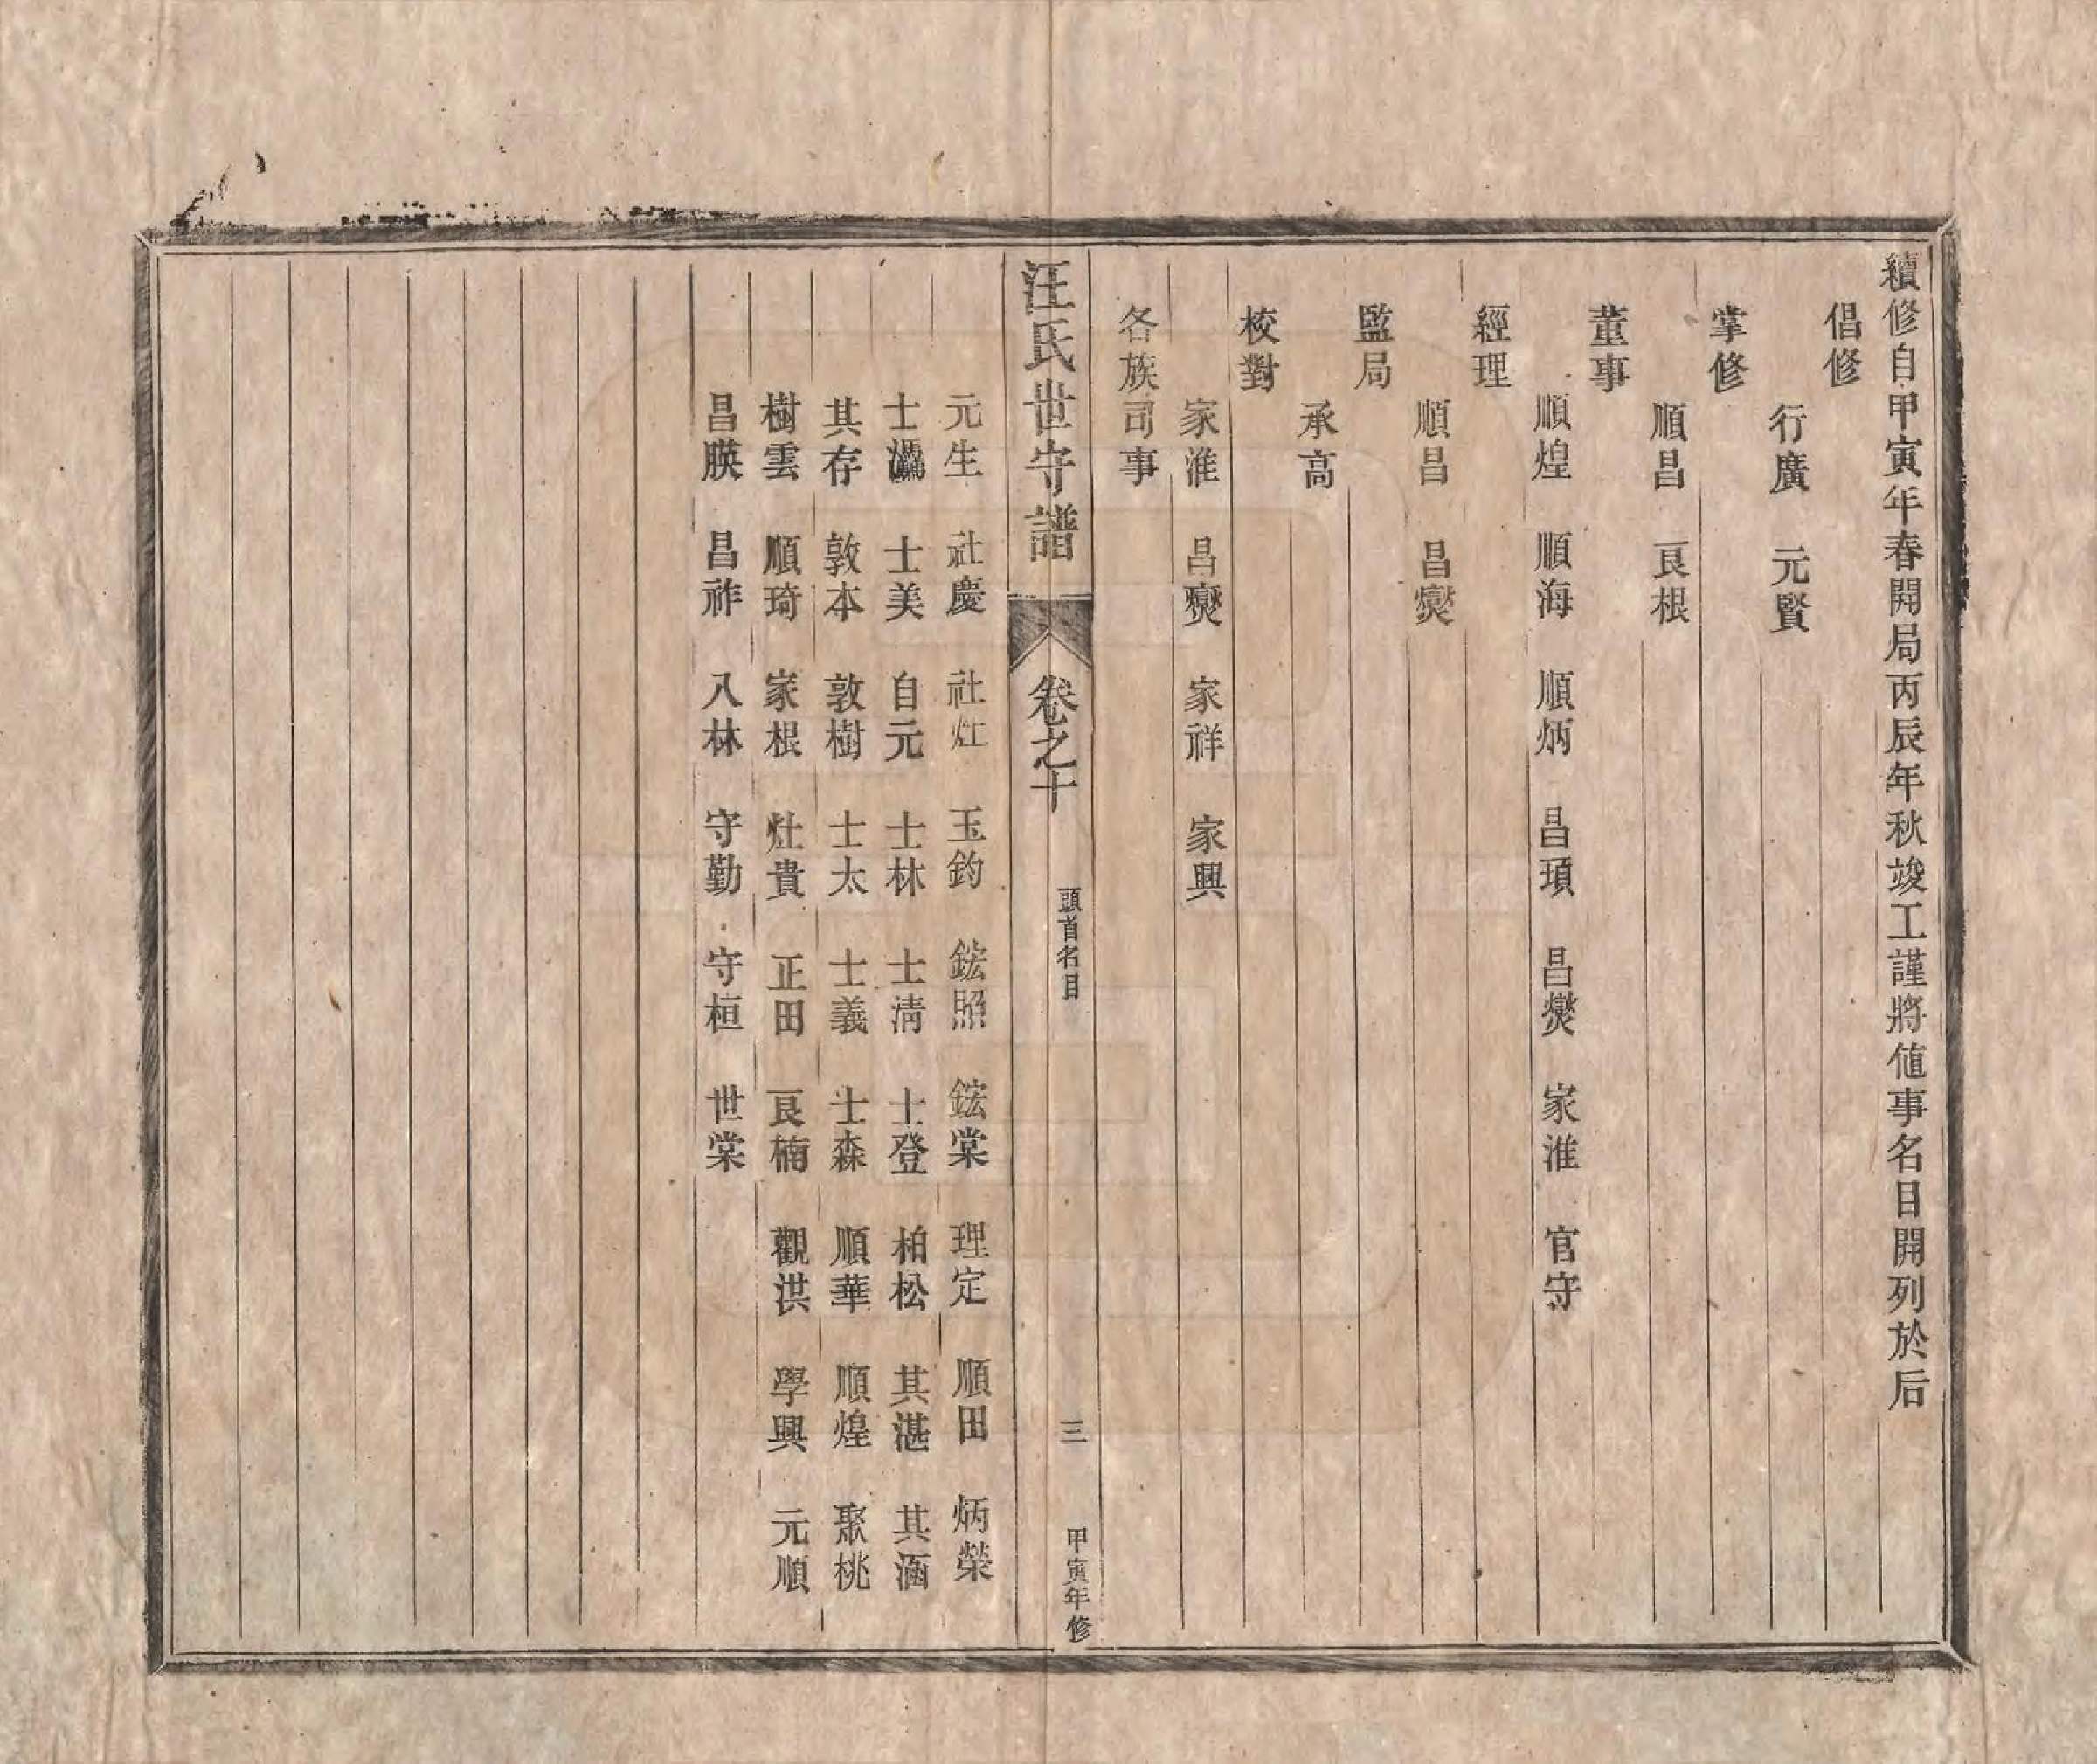 續修自甲寅年春開局丙辰年秋竣工謹將値事名目開列於后
倡修
行廣　元賢
掌修
順昌　良根
董事
順煌　順海　順炳　昌頊　昌爕　家淮　官守
經理
順昌　昌爕
監局
承高
校對
家淮　昌爕　家祥　家興
各族司事
汪氏世守譜　卷之十　頭首名目　三　甲寅年修
元生　社慶　社灶　玉鈞　鋐照　鋐棠　理定　順田　炳榮
士灞　士美　自元　士林　士淸　士登　柏松　其湛　其涵
其存　敦本　敦樹　士太　士義　士森　順華　順煌　聚桃
樹雲　順琦　家根　灶貴　正田　良楠　觀洪　學興　元順
昌朠　昌祚　入林　守勤　守桓　世棠